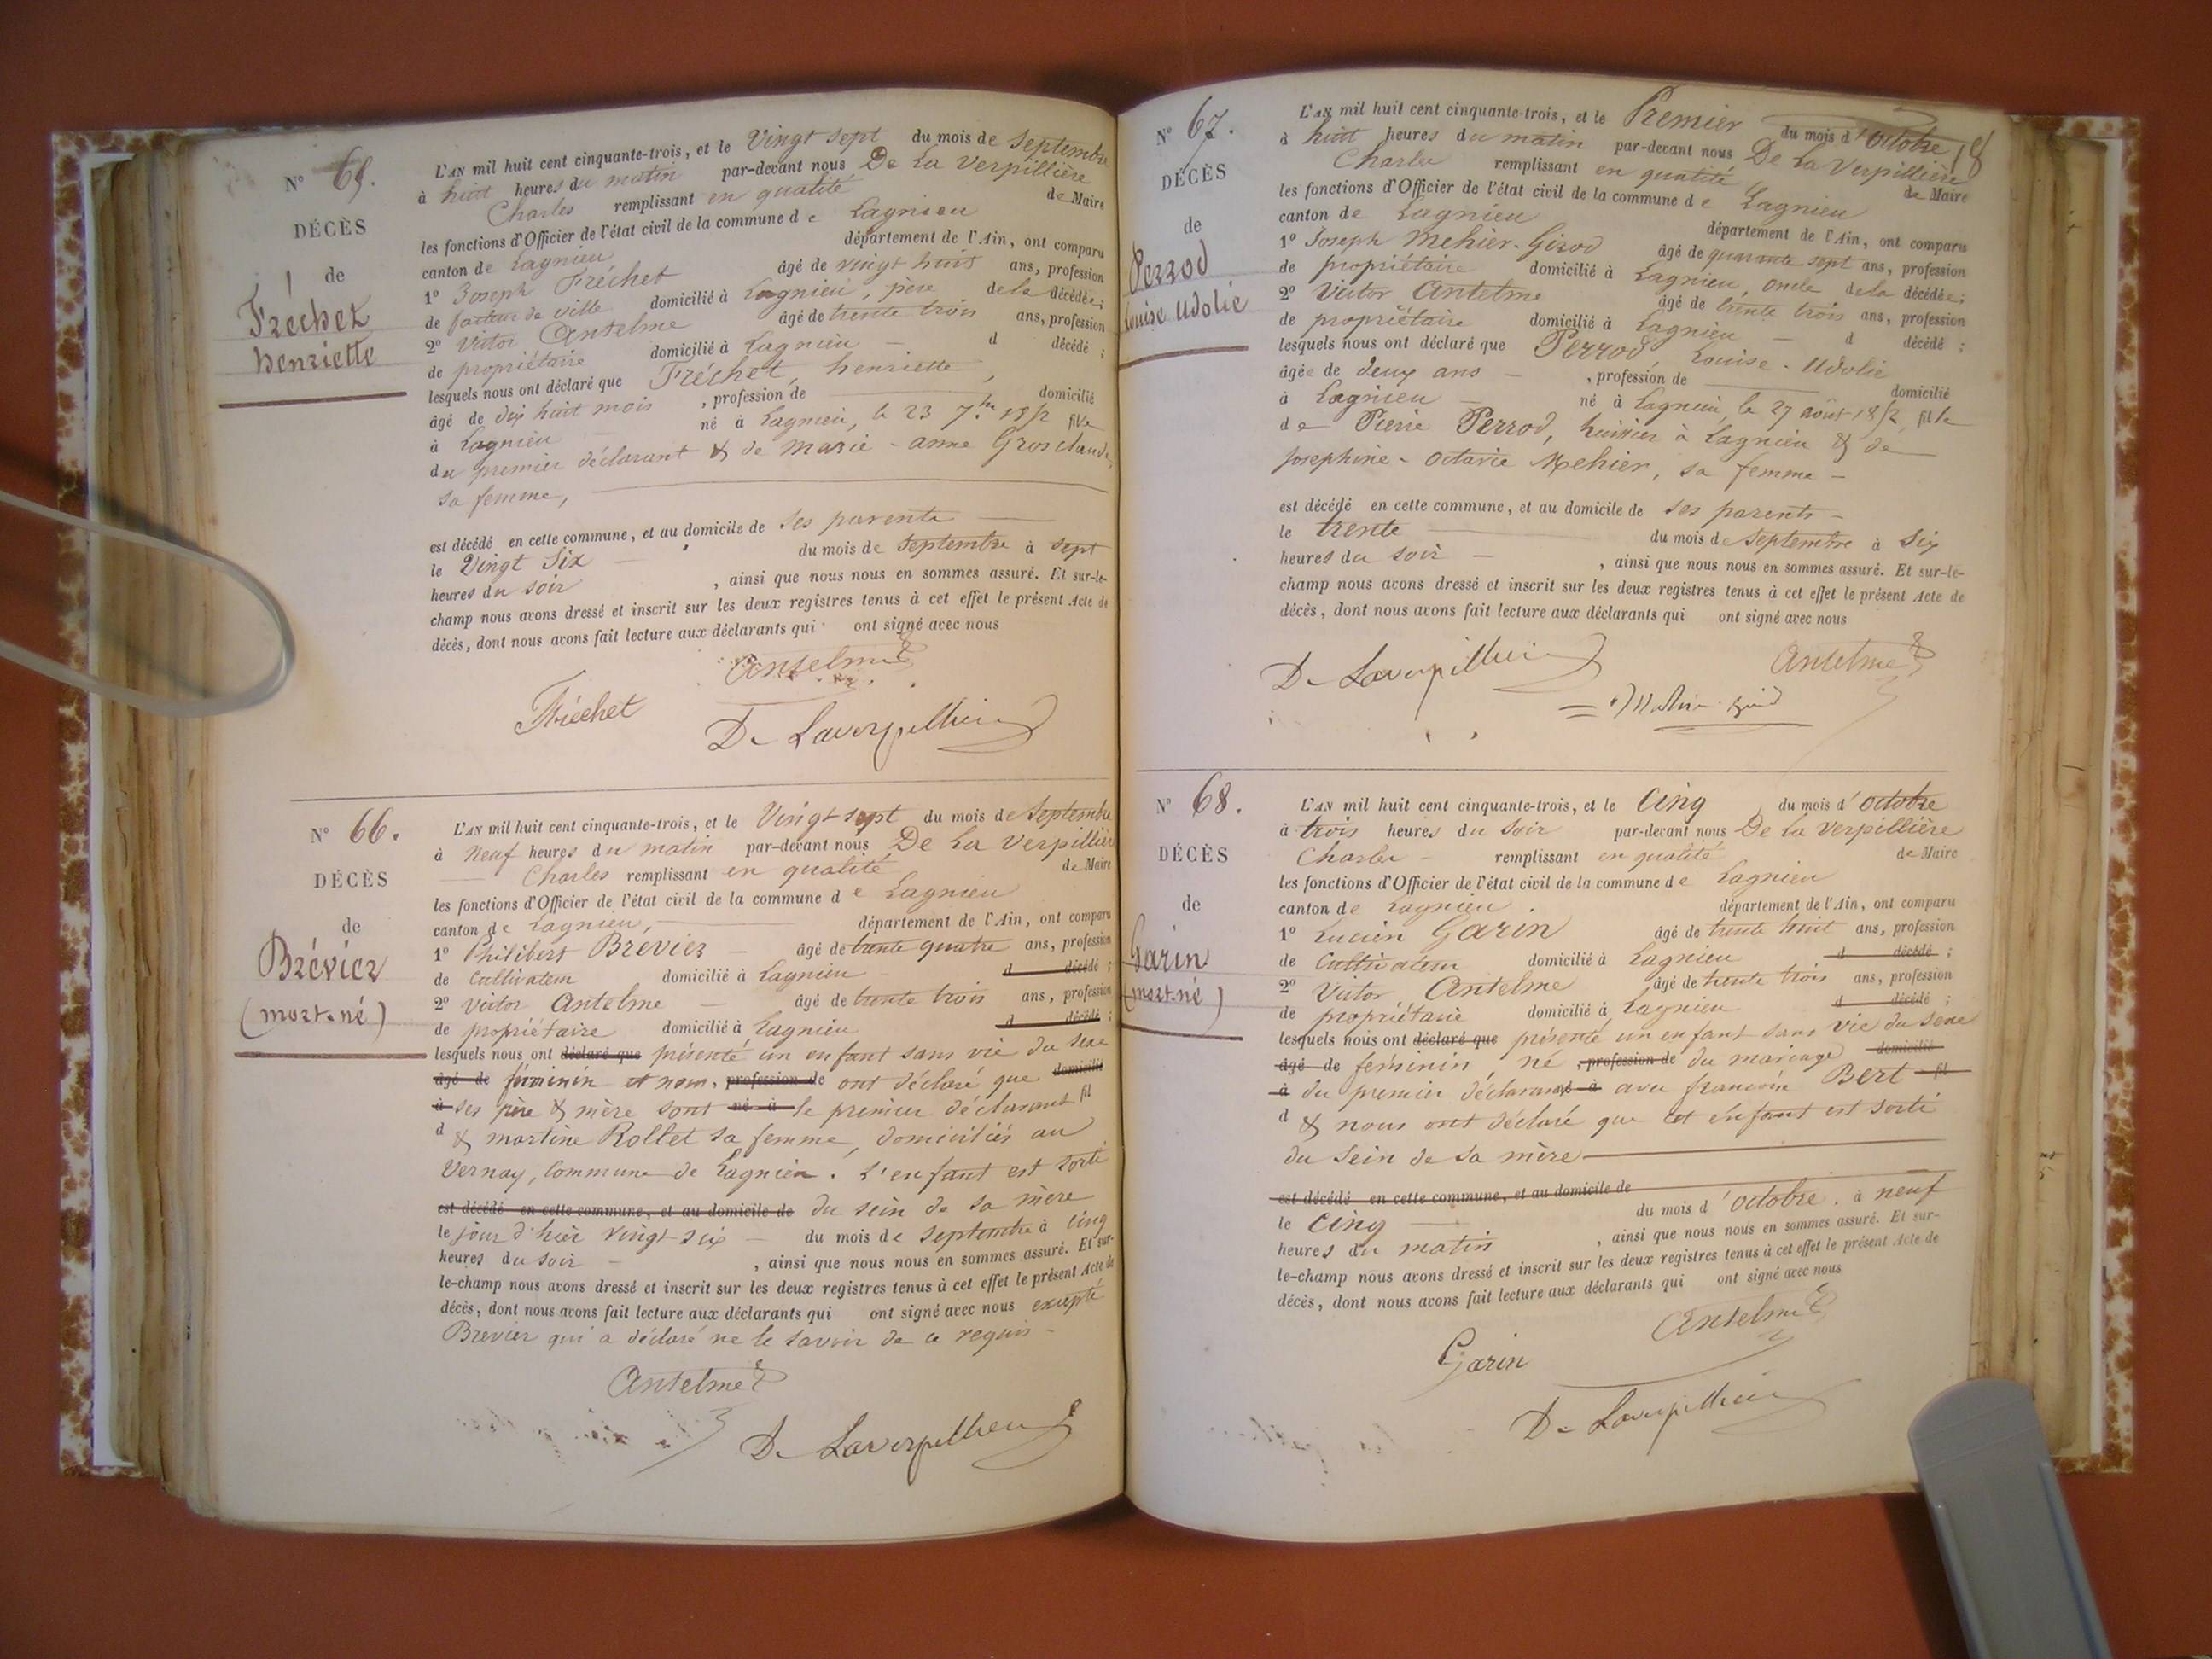 N° 65.
DÉCÈS
de
Fréchet
henriette
L'AN mil huit cent cinquante-trois, et le Vingt sept du mois de Septembre
à huit heures du matin par-devant nous De La Verpillière
Charles remplissant en qualité de Maire
les fonctions d'Officier de l'état civil de la commune de Lagnieu
canton de Lagnieu département de l'Ain, ont comparu
1° Joseph Fréchet âgé de vingt huit ans, profession
de facteur de ville domicilié à Lagnieu, père de la décédée;
2° Victor Antelme âgé de trente trois ans, profession
de propriétaire domicilié à Lagnieu – d décédé ;
lesquels nous ont déclaré que Fréchet, henriette,
âgé de dix huit mois , profession de domicilié
à Lagnieu né à Lagnieu, le 23 7.bre 1852 fille
du premier déclarant & de Marie-anne Grosclaude,
sa femme,
est décédé en cette commune, et au domicile de ses parents
le Vingt Six du mois de Septembre à sept
heures du soir , ainsi que nous nous en sommes assuré. Et sur-le-
champ nous avons dressé et inscrit sur les deux registres tenus à cet effet le présent Acte de
décès, dont nous avons fait lecture aux déclarants qui ont signé avec nous
Antelme
Fréchet
De Laverpillière
N° 66.
DÉCÈS
de
Brévier
(mort-né)
L'AN mil huit cent cinquante-trois, et le Vingt sept du mois de Septembre
à Neuf heures du matin par-devant nous De La Verpillière
Charles remplissant en qualité de Maire
les fonctions d'Officier de l'état civil de la commune de Lagnieu
canton de Lagnieu, département de l'Ain, ont comparu
1° Philibert Brevier – âgé de trente quatre ans, profession
de Cultivateur domicilié à Lagnieu d décédé ;
2° Victor Antelme – âgé de trente trois ans, profession
de propriétaire domicilié à Lagnieu d décédé ;
lesquels nous ont déclaré que présenté un enfant sans vie du sexe
âgé de féminin et nous, profession de ont déclaré que domicilié
à ses père & mère sont né à le premier déclarant fil
d & martine Rollet sa femme, domiciliés au
Vernay, Commune de Lagnieu. L'enfant est sorti
est décédé en cette commune, et au domicile de du sein de sa mère
le jour d'hier vingt six – du mois de Septembre à cinq
heures du soir – , ainsi que nous nous en sommes assuré. Et sur-
le-champ nous avons dressé et inscrit sur les deux registres tenus à cet effet le présent Acte de
décès, dont nous avons fait lecture aux déclarants qui ont signé avec nous excepté
Brevier qui a déclaré ne le savoir de ce requis –
Antelme
De Laverpillière
18
N° 67.
DÉCÈS
de
Perrod
Louise Udolie
L'AN mil huit cent cinquante-trois, et le Premier du mois d'octobre
à huit heures du matin par-devant nous De La Verpillière
Charles remplissant en qualité de Maire
les fonctions d'Officier de l'état civil de la commune de Lagnieu
canton de Lagnieu département de l'Ain, ont comparu
1° Joseph Mehier-Girod âgé de quarante sept ans, profession
de propriétaire domicilié à Lagnieu, oncle de la décédée;
2° Victor Antelme âgé de trente trois ans, profession
de propriétaire domicilié à Lagnieu – d décédé ;
lesquels nous ont déclaré que Perrod Louise-Udolie
âgée de deux ans – , profession de domicilié
à Lagnieu – né à Lagnieu, le 27 août 1852, fille
de Pierre Perrod, huissier à Lagnieu & de
Josephine-Octavie Mehier, sa femme –
est décédé en cette commune, et au domicile de ses parents –
le trente du mois de Septembre à Six
heures du soir – , ainsi que nous nous en sommes assuré. Et sur-le-
champ nous avons dressé et inscrit sur les deux registres tenus à cet effet le présent Acte de
décès, dont nous avons fait lecture aux déclarants qui ont signé avec nous
De Laverpillière
Antelme
N° 68.
DÉCÈS
de
Garin
(mort-né)
L'AN mil huit cent cinquante-trois, et le Cinq du mois d'octobre
à trois heures du soir par-devant nous De La Verpillière
Charles – remplissant en qualité de Maire
les fonctions d'Officier de l'état civil de la commune de Lagnieu
canton de Lagnieu. département de l'Ain, ont comparu
1° Lucien Garin âgé de trente huit ans, profession
de Cultivateur domicilié à Lagnieu d décédé ;
2° Victor Antelme âgé de trente trois ans, profession
de propriétaire domicilié à Lagnieu d décédé ;
lesquels nous ont déclaré que présenté un enfant sans vie du sexe
âgé de féminin, né , profession de du mariage domicilié
à du premier déclarant né à avec françoise Bert fil
d & nous ont déclaré que cet enfant est sorti
du sein de sa mère
est décédé en cette commune, et au domicile de
le Cinq du mois d'octobre. à neuf
heures du matin , ainsi que nous nous en sommes assuré. Et sur-
le-champ nous avons dressé et inscrit sur les deux registres tenus à cet effet le présent Acte de
décès, dont nous avons fait lecture aux déclarants qui ont signé avec nous
Antelme
Garin
De Laverpillière